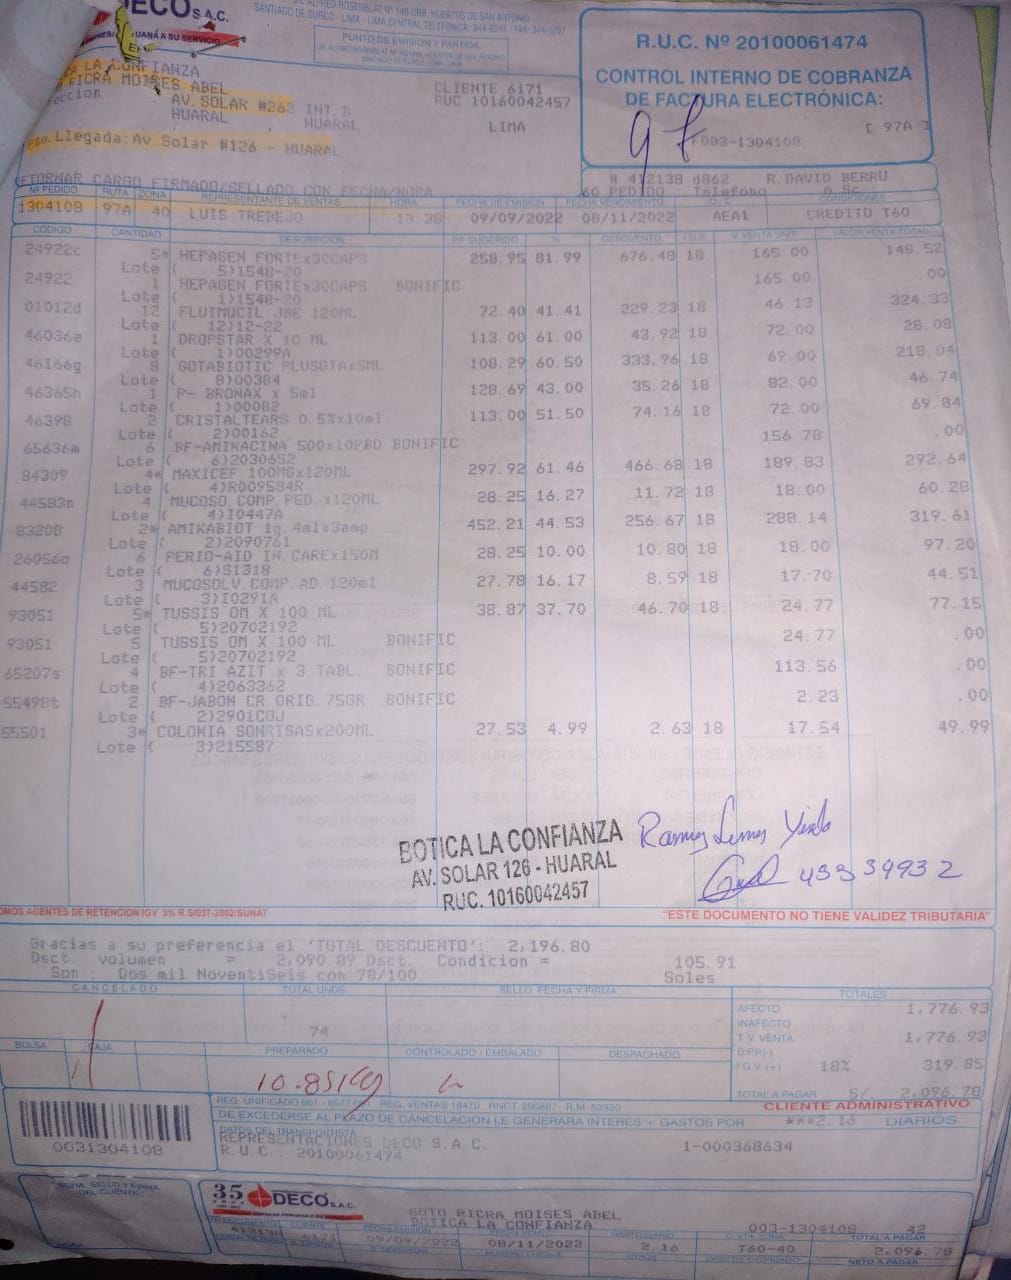 DECO S.A.C.
SANTIAGO DE SURCO - LIMA - LIMA CENTRAL TELEFONICA: 344-0241 - FAX: 344-0207
PUNTO DE EMISION Y PARTIDA
R.U.C. Nº 20100061474
CONTROL INTERNO DE COBRANZA
DE FACTURA ELECTRÓNICA:
[ 97A ]
F003-1304108
LA CONFIANZA
RICRA MOISES ABEL
AV. SOLAR #262 INT. B
HUARAL HUARAL
CLIENTE 6171
RUC 10160042457
LIMA
Pto. Llegada: Av. Solar #126 - HUARAL
RETORNAR CARGO FIRMADO/SELLADO CON FECHA/HORA
# 412138 d862 R. DAVID BERRU
60 PEDIDO Telefono A. Sc.
Nº PEDIDO RUTA ZONA REPRESENTANTE DE VENTAS HORA FECHA DE EMISIÓN FECHA VENCIMIENTO CONDICIONES
1304108 97A 40 LUIS TREBEJO 13:38 09/09/2022 08/11/2022 AEA1 CREDITO T60
CODIGO CANTIDAD DESCRIPCION PP SUGERIDO % DESCUENTO I.G.V. V. VENTA UNIT. VALOR VENTA TOTAL
24922c 5* HEPAGEN FORTEx30CAPS 258.95 81.99 676.48 18 165.00 148.52
Lote ( 5)1548-20
24922 1 HEPAGEN FORTEx30CAPS BONIFIC 165.00 .00
Lote ( 1)1548-20
01012d 12 FLUIMUCIL JBE 120ML 72.40 41.41 229.23 18 46.13 324.33
Lote ( 12)12-22
46036e 1 DROPSTAR X 10 ML 113.00 61.00 43.92 18 72.00 28.08
Lote ( 1)00299A
46166g 8 GOTABIOTIC PLUSGTAx5ML 108.29 60.50 333.96 18 69.00 218.04
Lote ( 8)00384
46365h 1 P- BRONAX x 5ml 128.69 43.00 35.26 18 82.00 46.74
Lote ( 1)00082
46398 2 CRISTALTEARS 0.5%x10ml 113.00 51.50 74.16 18 72.00 69.84
Lote ( 2)00162
65636m 6 BF-AMIKACINA 500x10PBD BONIFIC 156.78 .00
Lote ( 6)2030652
84309 4* MAXICEF 100MGx120ML 297.92 61.46 466.68 18 189.83 292.64
Lote ( 4)R009584R
44583n 4 MUCOSO.COMP.PED.x120ML 28.25 16.27 11.72 18 18.00 60.28
Lote ( 4)I0447A
83208 2* AMIKABIOT 1g.4mlx3amp. 452.21 44.53 256.67 18 288.14 319.61
Lote ( 2)2090761
26056o 6 PERIO-AID IN.CAREx150M 28.25 10.00 10.80 18 18.00 97.20
Lote ( 6)S1318
44582 3 MUCOSOLV.COMP.AD.120ml 27.78 16.17 8.59 18 17.70 44.51
Lote ( 3)I0291A
93051 5* TUSSIS OM X 100 ML 38.87 37.70 46.70 18 24.77 77.15
Lote ( 5)20702192
93051 5 TUSSIS OM X 100 ML BONIFIC 24.77 .00
Lote ( 5)20702192
65207s 4 BF-TRI AZIT x 3 TABL. BONIFIC 113.56 .00
Lote ( 4)2063362
55498t 2 BF-JABON CR.ORIG.75GR BONIFIC 2.23 .00
Lote ( 2)2901COJ
55501 3* COLONIA SONRISASx200ML 27.53 4.99 2.63 18 17.54 49.99
Lote ( 3)215587
BOTICA LA CONFIANZA
AV. SOLAR 126 - HUARAL
RUC. 10160042457
43339932
SOMOS AGENTES DE RETENCION IGV 3% R.S/037-2002/SUNAT
"ESTE DOCUMENTO NO TIENE VALIDEZ TRIBUTARIA"
Gracias a su preferencia el 'TOTAL DESCUENTO': 2,196.80
Dsct. volumen = 2,090.89 Dsct. Condicion = 105.91
Son : Dos mil NoventiSeis con 78/100 Soles
CANCELADO TOTAL UNDS. SELLO, FECHA Y FIRMA TOTALES
74
AFECTO 1,776.93
INAFECTO
T.V. VENTA 1,776.93
D.PP(-)
I.G.V.(+) 18% 319.85
TOTAL A PAGAR S/. 2,096.78
BOLSA CAJA PREPARADO CONTROLADO / EMBALADO DESPACHADO
10.851Kg
CLIENTE ADMINISTRATIVO
DE EXCEDERSE AL PLAZO DE CANCELACION LE GENERARA INTERES + GASTOS POR ***2.16 DIARIOS
DATOS DEL TRANSPORTISTA
REPRESENTACIONES DECO S.A.C. 1-000368634
R.U.C. : 20100061474
0031304108
FECHA, SELLO Y FIRMA
DEL CLIENTE
HORA
35 DECO S.A.C.
SOTO RICRA MOISES ABEL
BOTICA LA CONFIANZA
003-1304108 42
TOTAL A PAGAR
412138 6171 09/09/2022 08/11/2022 2.16 T60-40 2,096.78
NETO A PAGAR